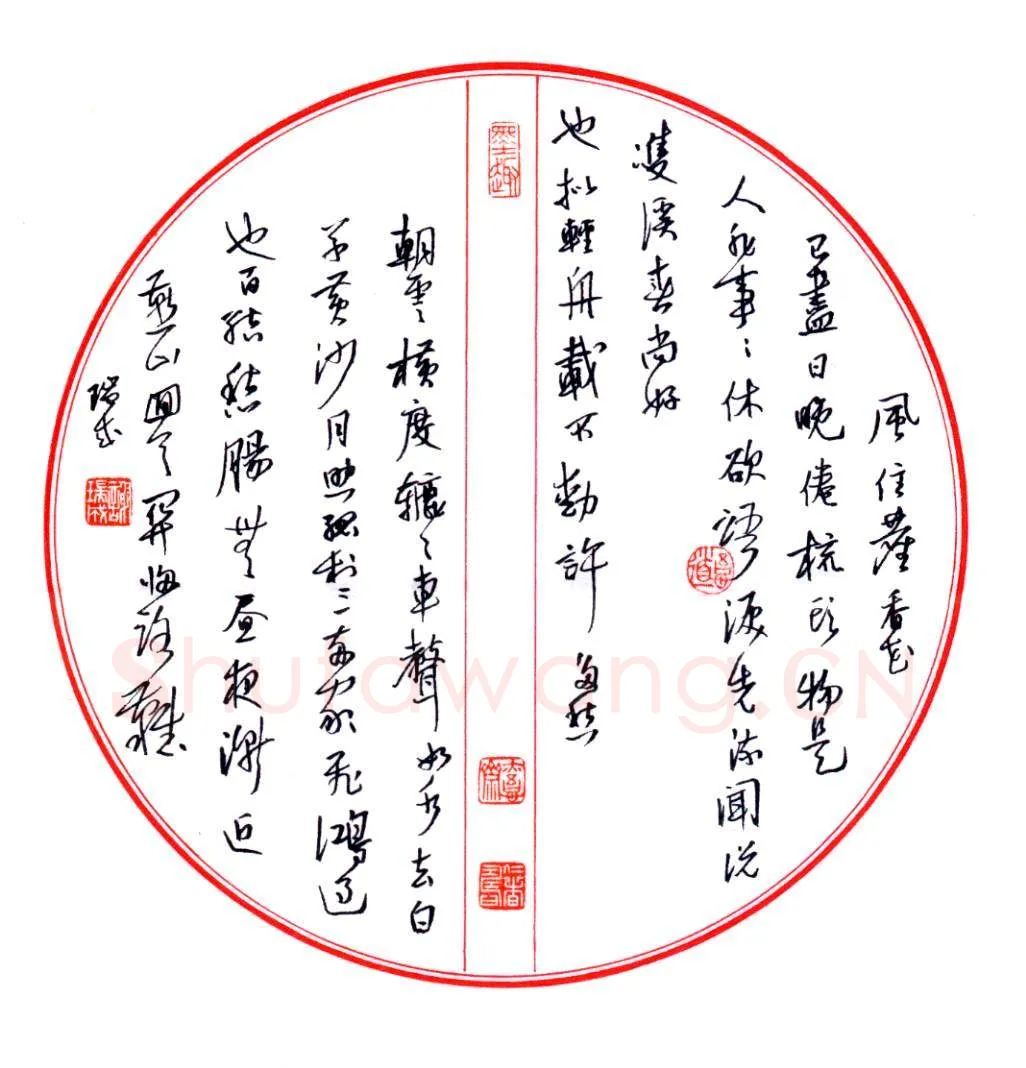 風住塵香花
已盡日晚倦梳頭物是
人非事〻休欲語淚先流聞説
雙溪春尚好
也擬輕舟載不動許多愁
墨趣
朝雲橫度轆〻車聲如水去白
草黃沙月照孤村三兩家飛鴻過
也百結愁腸無晝夜漸近
燕山回首鄉關歸路難
瑞成
Shufawang.CN